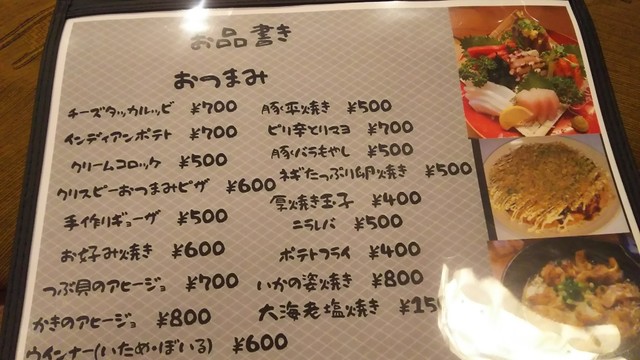 お品書き
おつまみ
チーズタッカルッビ ¥700
インディアンポテト ¥700
クリームコロッケ ¥500
クリスピーおつまみピザ ¥600
手作りギョーザ ¥500
お好み焼き ¥600
つぶ貝のアヒージョ ¥700
かきのアヒージョ ¥800
ウインナー(いため・ぼいる) ¥600
豚平焼き ¥500
ピリ辛とりマヨ ¥700
豚バラもやし ¥500
ネギたっぷり卵焼き ¥500
厚焼き玉子 ¥400
ニラレバ ¥500
ポテトフライ ¥400
いかの姿焼き ¥800
大海老塩焼き